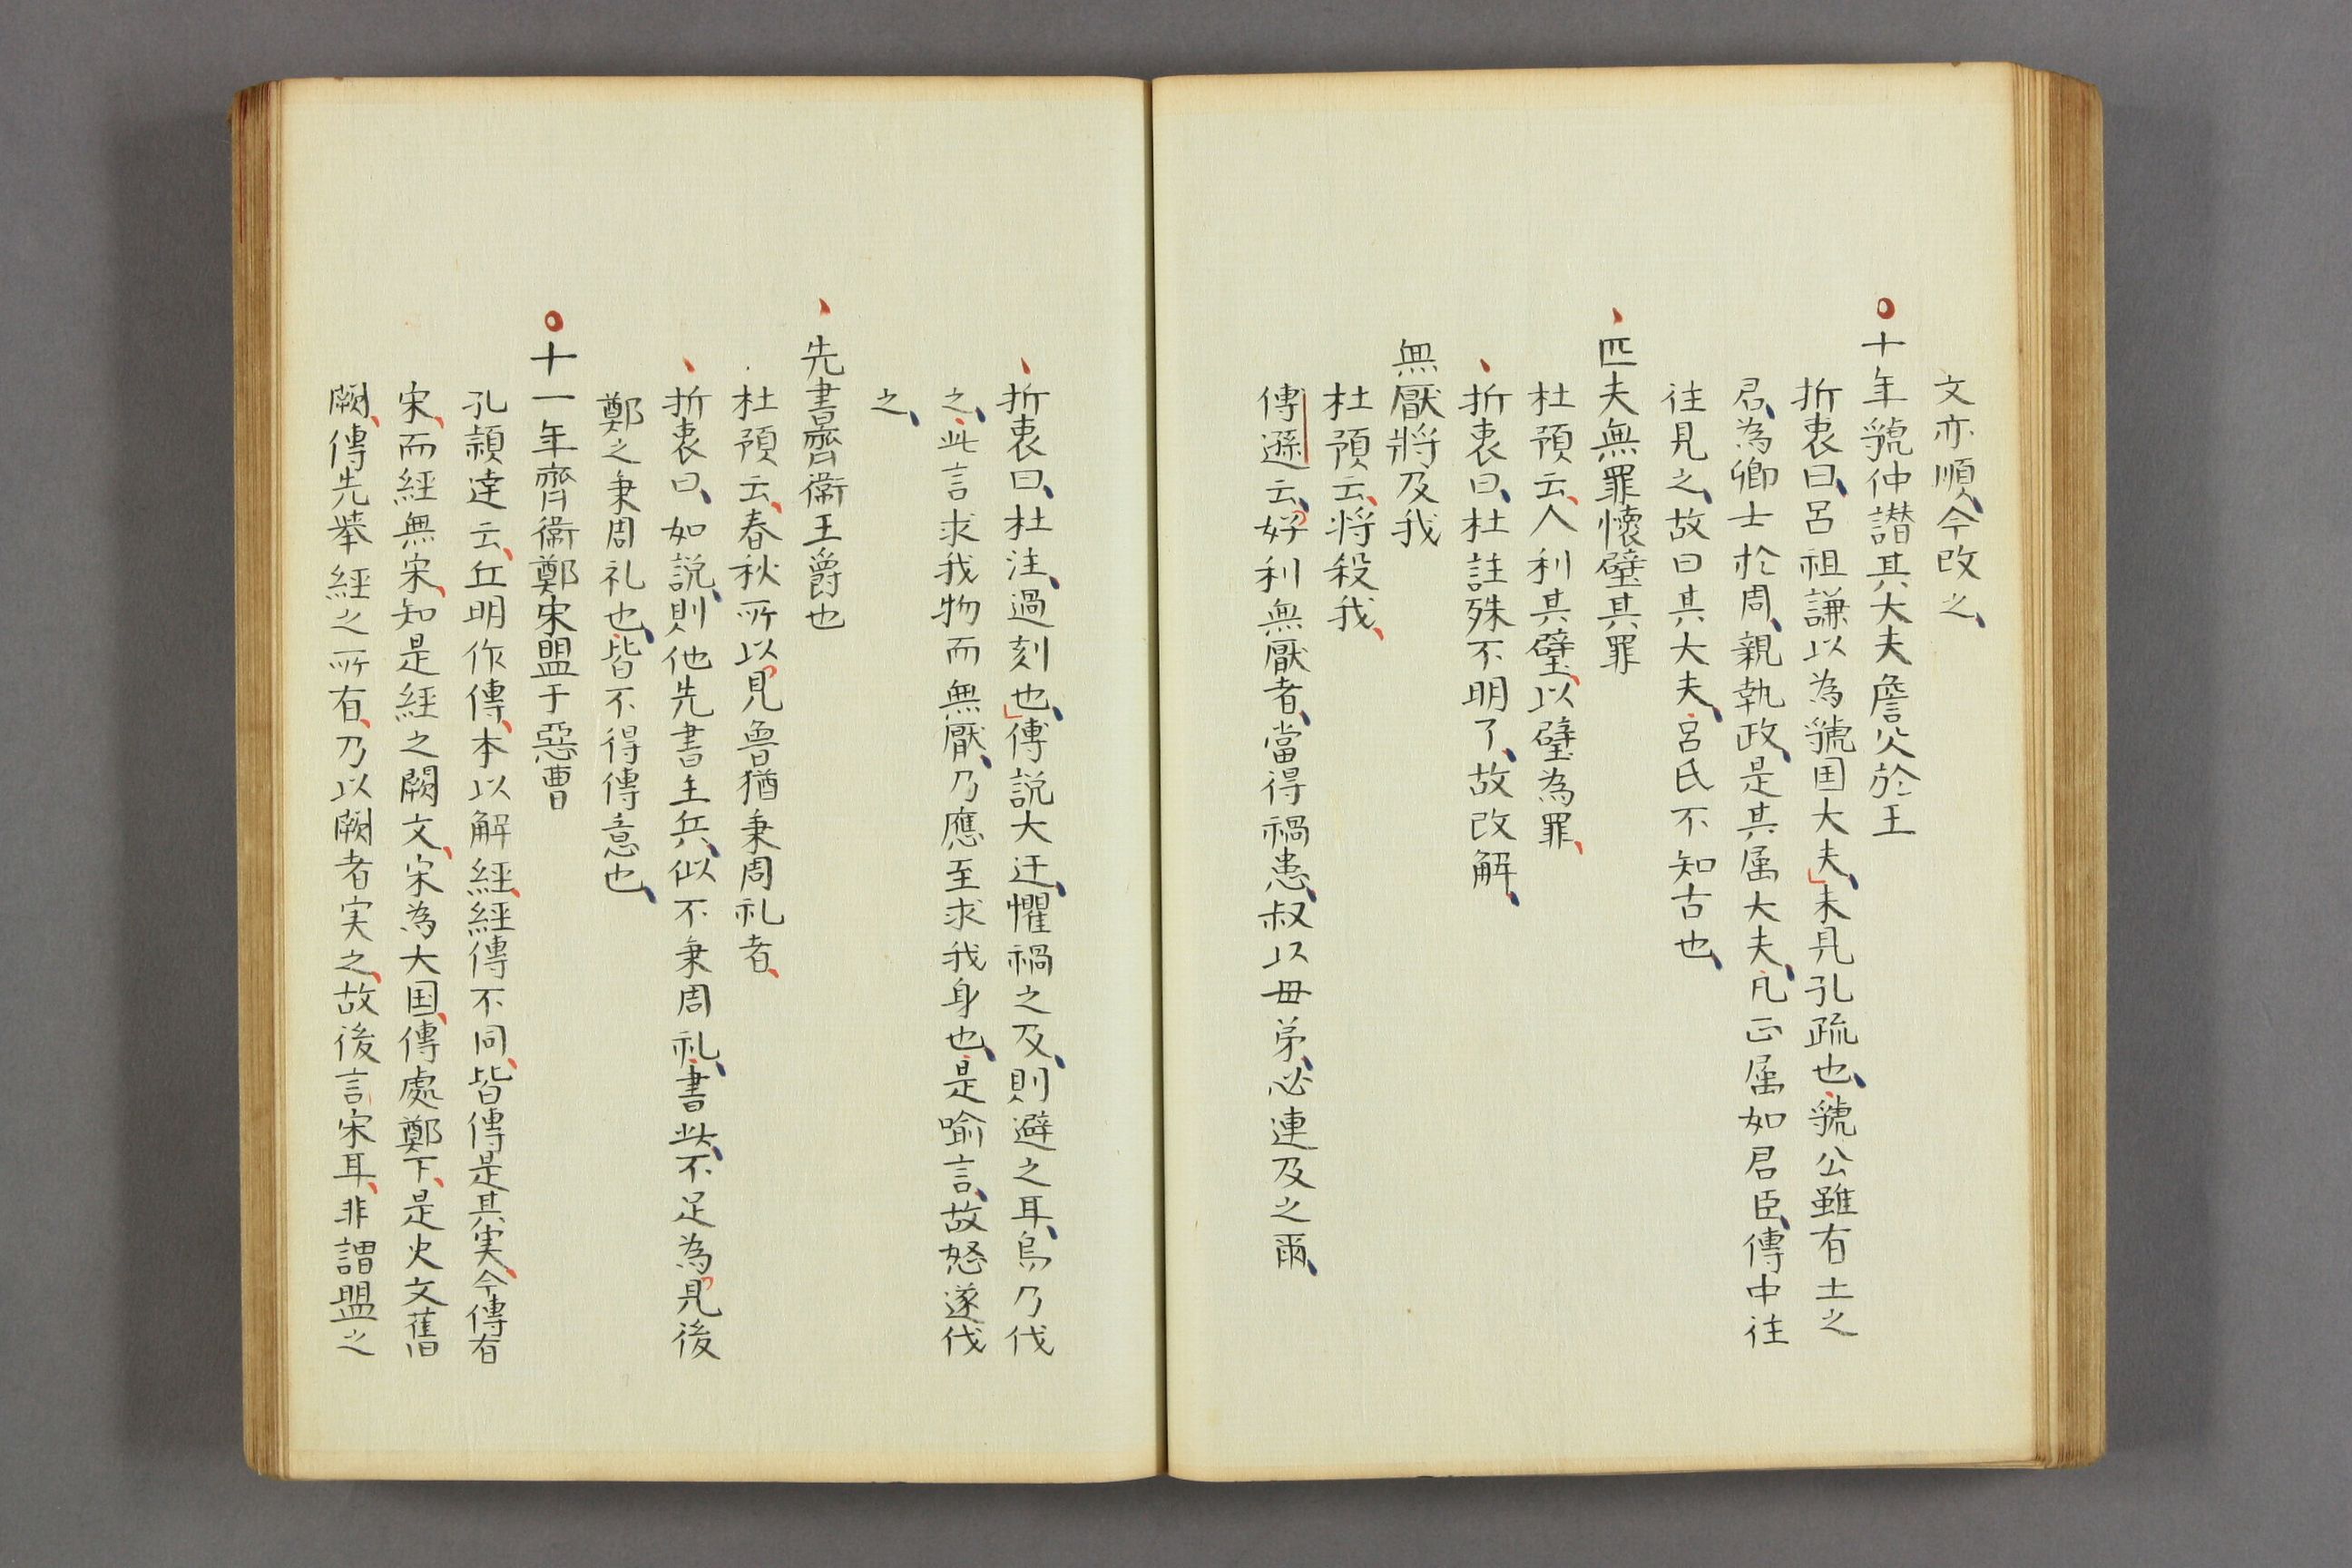 文亦順、今改之、
十年虢仲譖其大夫詹父於王
折衷曰、呂祖謙以為虢国大夫、未見孔疏也、虢公雖有土之
君、為卿士於周、親執政、是其属大夫、凡正属如君臣、傳中往
往見之、故曰其大夫、呂氏不知古也、
匹夫無罪懷璧其罪
杜預云、人利其璧、以璧為罪、
折衷曰、杜註殊不明了、故改解、
無厭将及我
杜預云、将殺我、
傳遜云、好利無厭者、當得禍患、叔以母弟、必連及之爾、
折衷曰、杜注、過刻也、傳説大迂、懼禍之及、則避之耳、烏乃伐
之、此言求我物而無厭、乃應至求我身也、是喻言、故怒遂伐
之、
先書齊衞王爵也
杜預云、春秋所以見魯猶秉周礼者、
折衷曰、如説、則他先書主兵、似不秉周礼、書此、不足為見後
鄭之秉周礼也、皆不得傳意也、
十一年齊衞鄭宋盟于惡曹
孔頴達云、丘明作傳、本以解經、經傳不同、皆傳是其実、今傳有
宋、而經無宋、知是經之闕文、宋為大国、傳處鄭下、是史文舊
闕、傳先舉經之所有、乃以闕者実之、故後言宋耳、非謂盟之